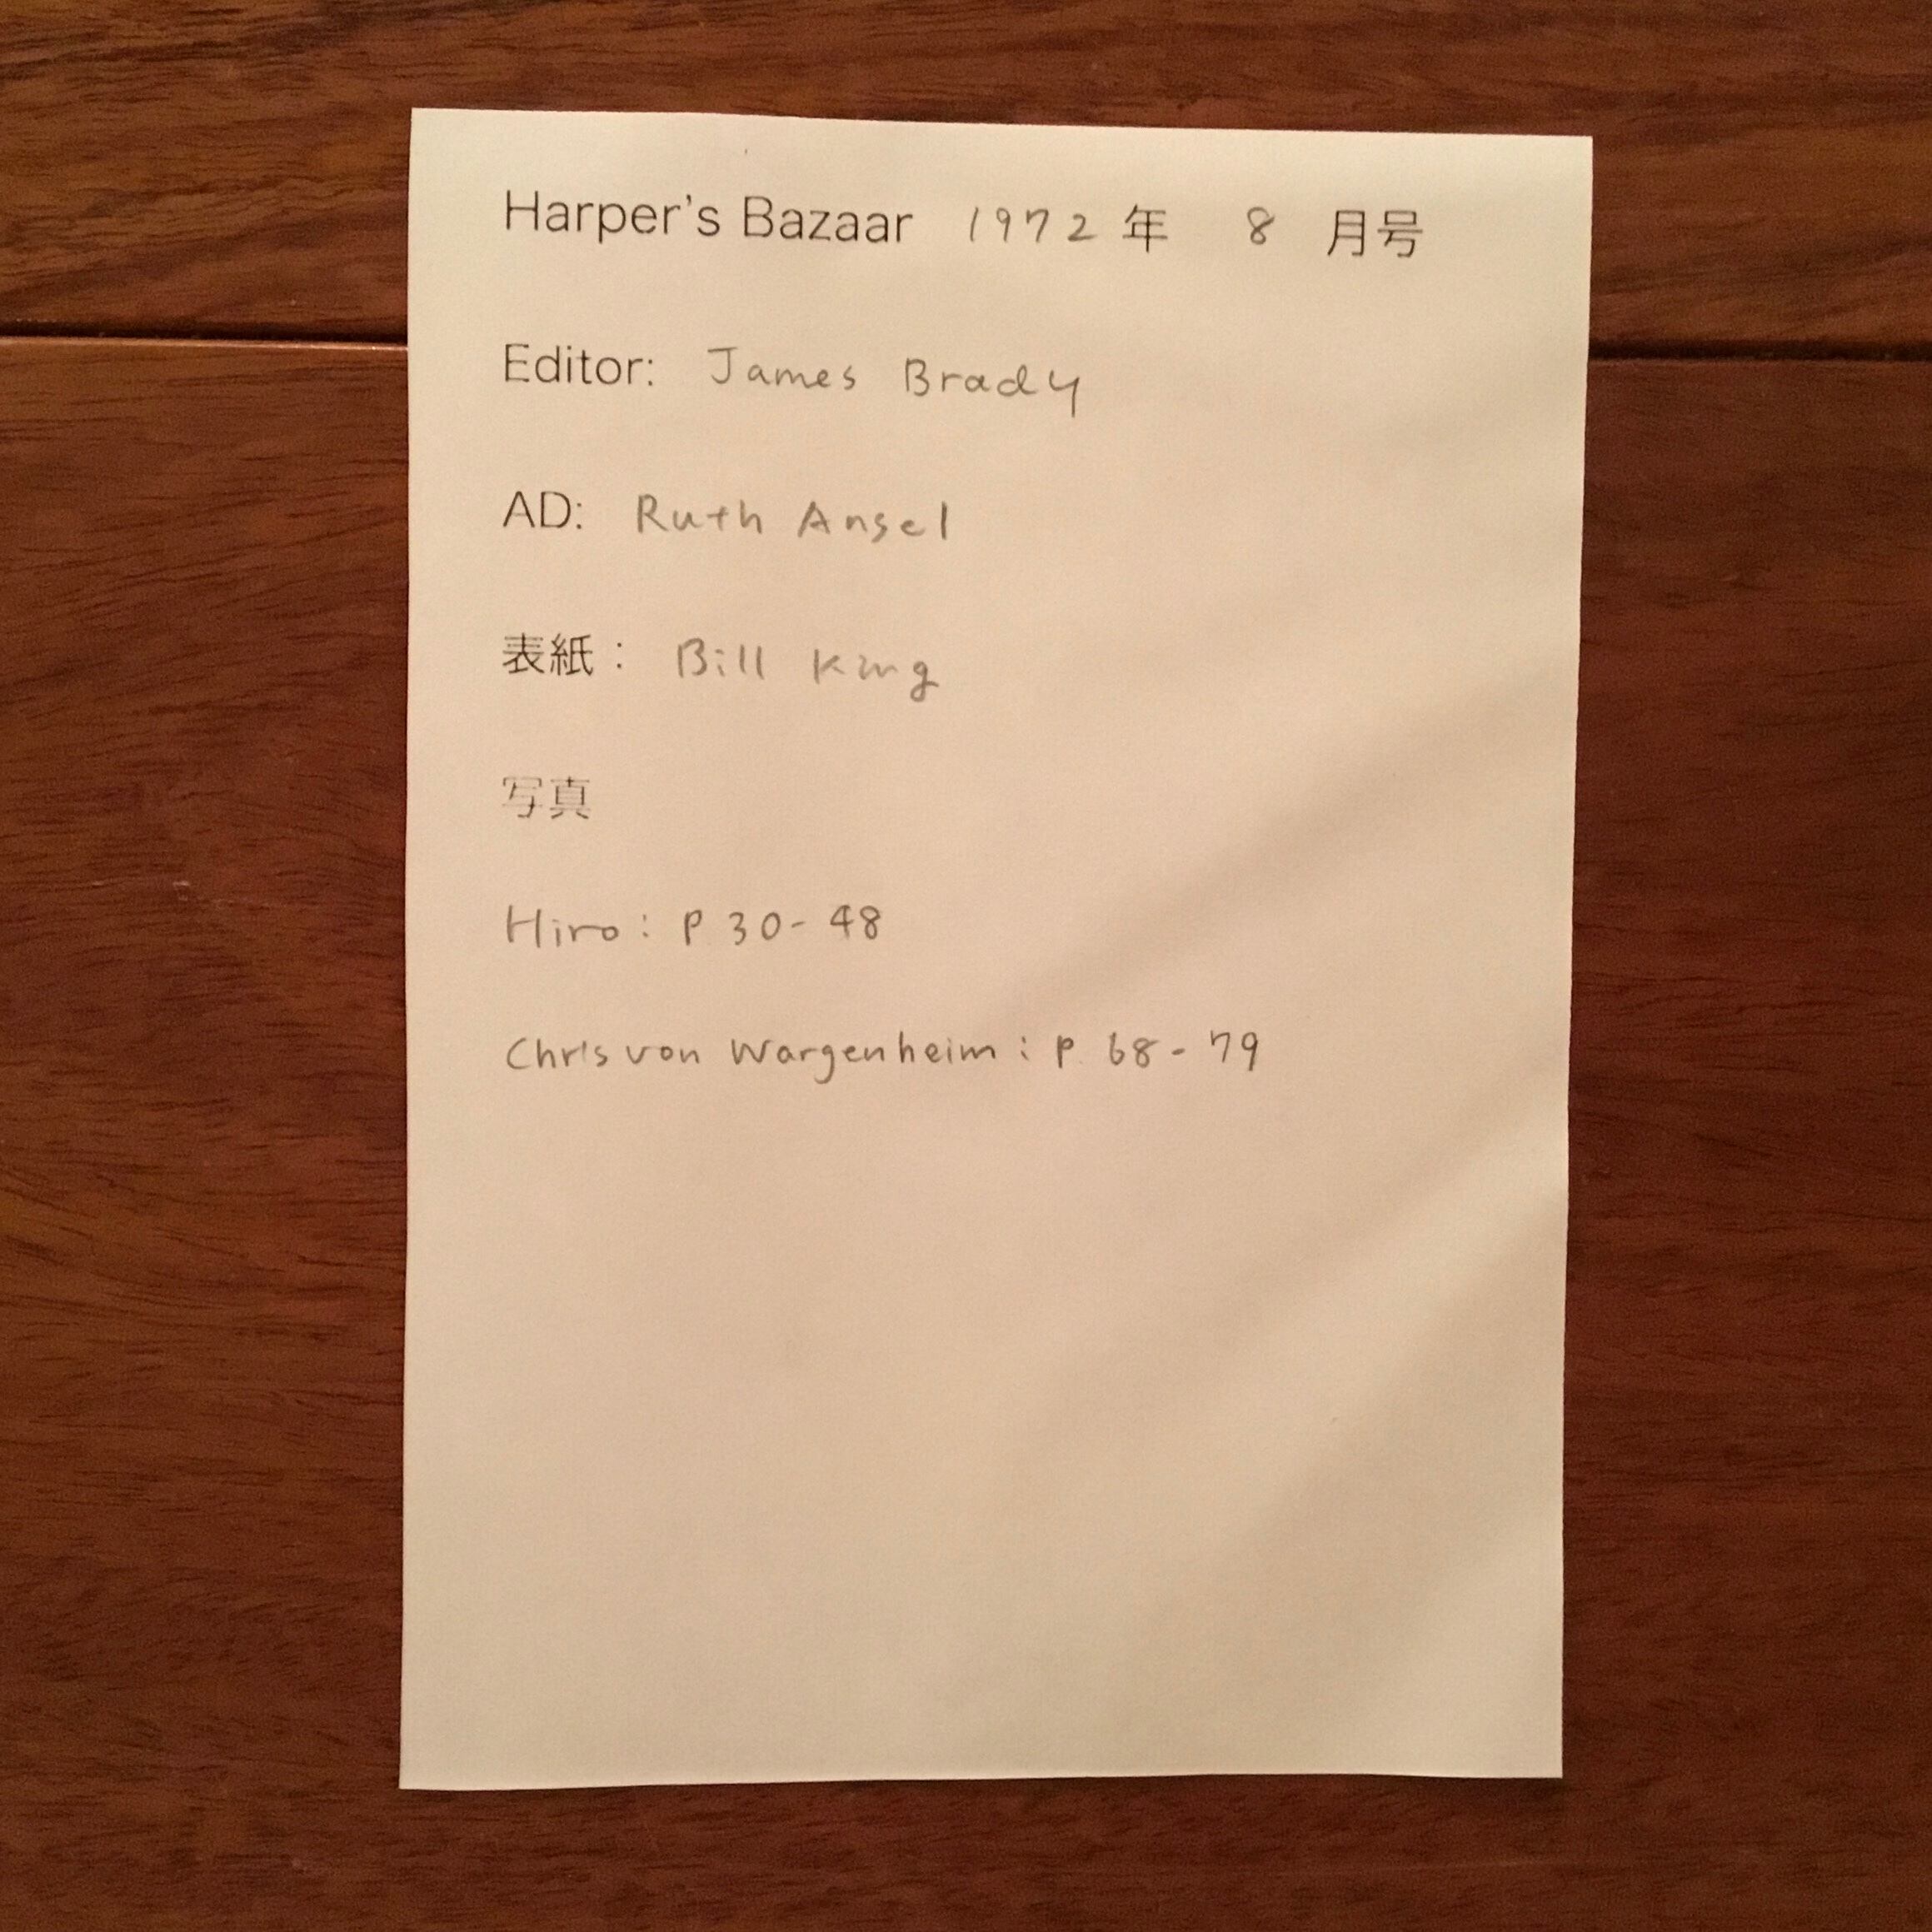 Harper's Bazaar 1972 年 8 月号
Editor: James Brady
AD: Ruth Ansel
表紙： Bill King
写真
Hiro: P 30-48
Chris von Wargenheim: P. 68-79